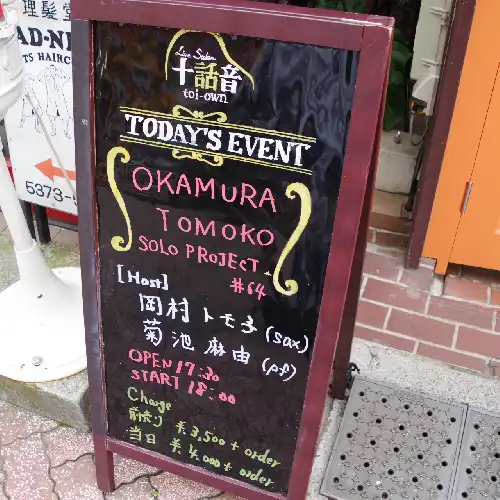 理髪堂
AD-N
TS HAIRC
5373-
Live Salon
十話音
toi-own
TODAY'S EVENT
OKAMURA
TOMOKO
SOLO PROJECT
#64
[Host]
岡村トモ子(sax)
菊池麻由(pf)
OPEN 17:30
START 18:00
Charge
前売り ¥3,500 + order
当日 ¥4,000 + order